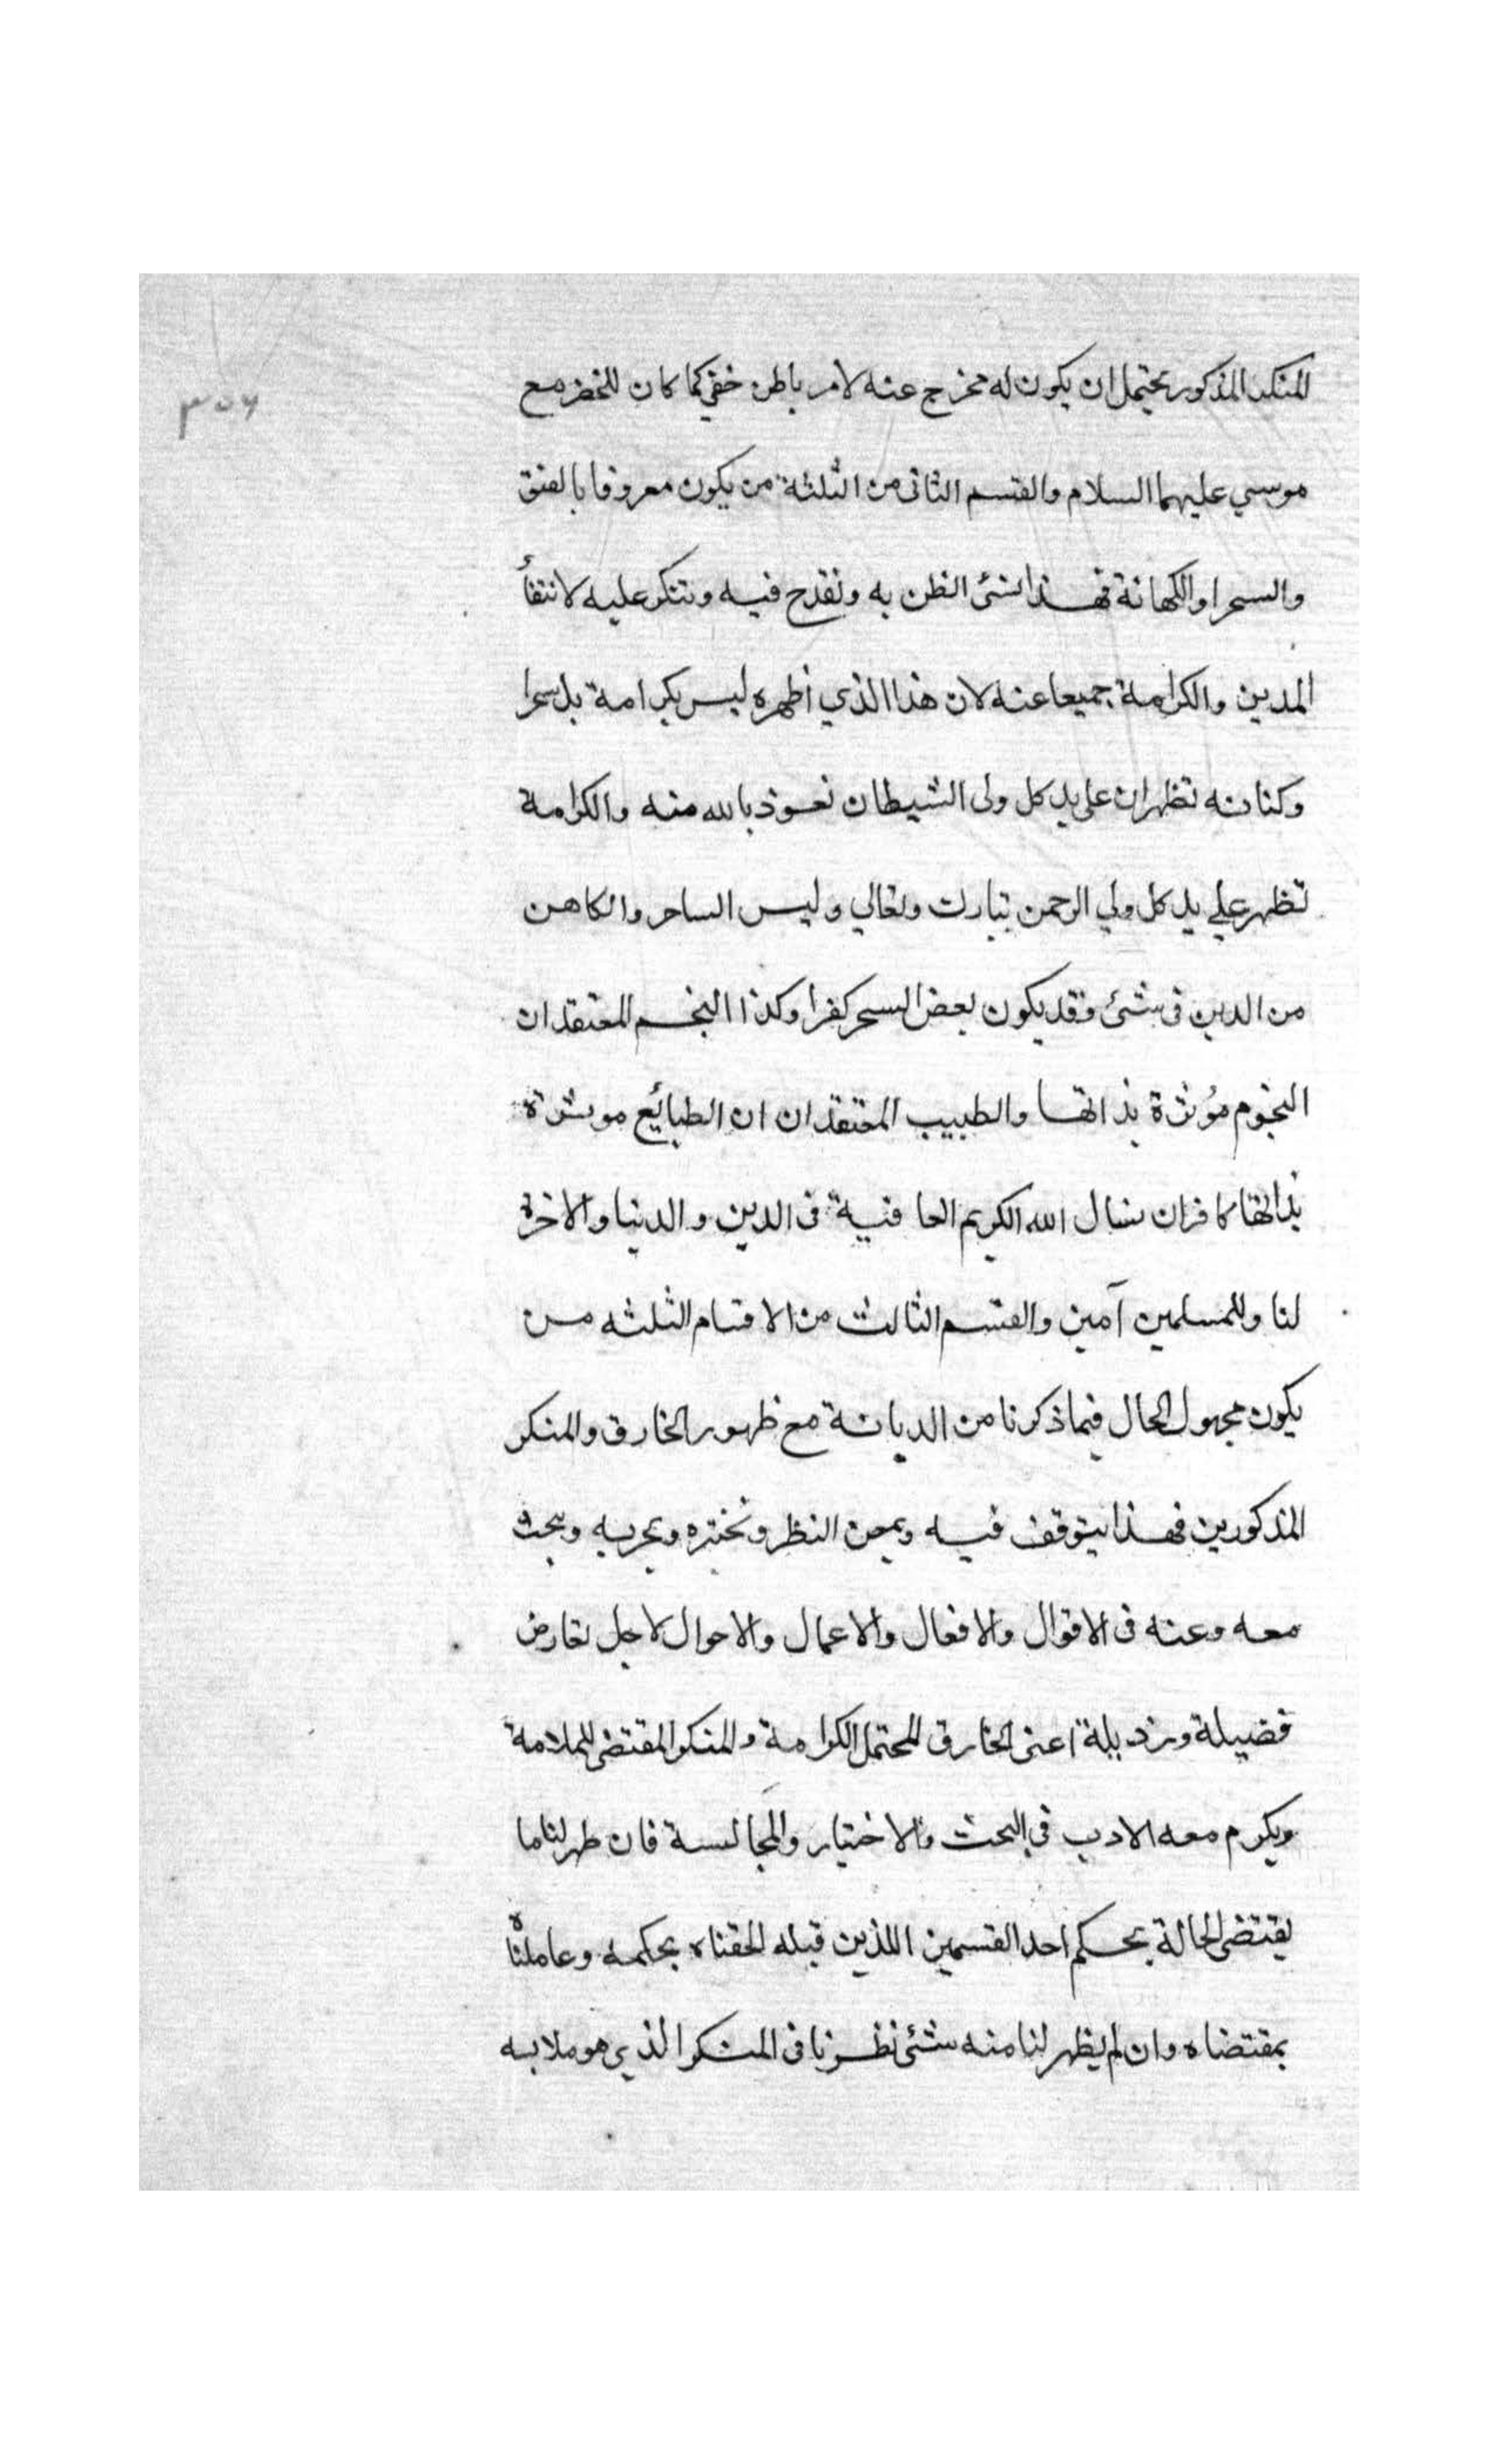 المنكر المذكور يحتمل ان يكون له مخرج عنه لامر باطن خفي كما كان للخضر مع
موسي عليهما السلام والقسم الثانى من الثلثة من يكون معروفا بالفسق
والسحر او الكهانة فهذا نسئ الظن به ونقدح فيه وننكر عليه لانتفأ
الدين والكرامة جميعا عنه لان هذا الذي أظهره ليس بكرامة بل سحرا
وكهانه تظهران على يد كل ولى الشيطان نعوذ بالله منه والكرامة
تظهر علي يد كل ولي الرحمن تبارك وتعالي وليس الساحر والكاهن
من الدين فى شئ وقد يكون بعض السحر كفرا وكذا المنجم المعتقد ان
النجوم مؤثرة بذاتها والطبيب المعتقد ان ان الطبائع موثرة
بذاتها كافران نسال الله الكريم العافية فى الدين والدنيا والاخرة
لنا وللمسلمين آمين والقسم الثالث من الاقسام الثلثه من
يكون مجهول الحال فيما ذكرنا من الديانة مع ظهور الخارق والمنكر
المذكورين فهذا يتوقف فيه ويمعن النظر ونختبره ونجربه ونبحث
معه وعنه فى الاقوال والافعال والاعمال والاحوال لاجل تعارض
فضيلة ورذيلة اعنى الخارق المحتمل الكرامة والمنكر المقتضى للملامة
ويكرم معه الادب في البحث والاختيار والمجالسة فان ظهر لنا ما
يقتضى الحالة بحكم احد القسمين اللذين قبله الحقناه بحكمه وعاملناه
بمقتضاه وان لم يظهر لنا منه شئ نظرنا فى المنكر الذي هو ملابسه